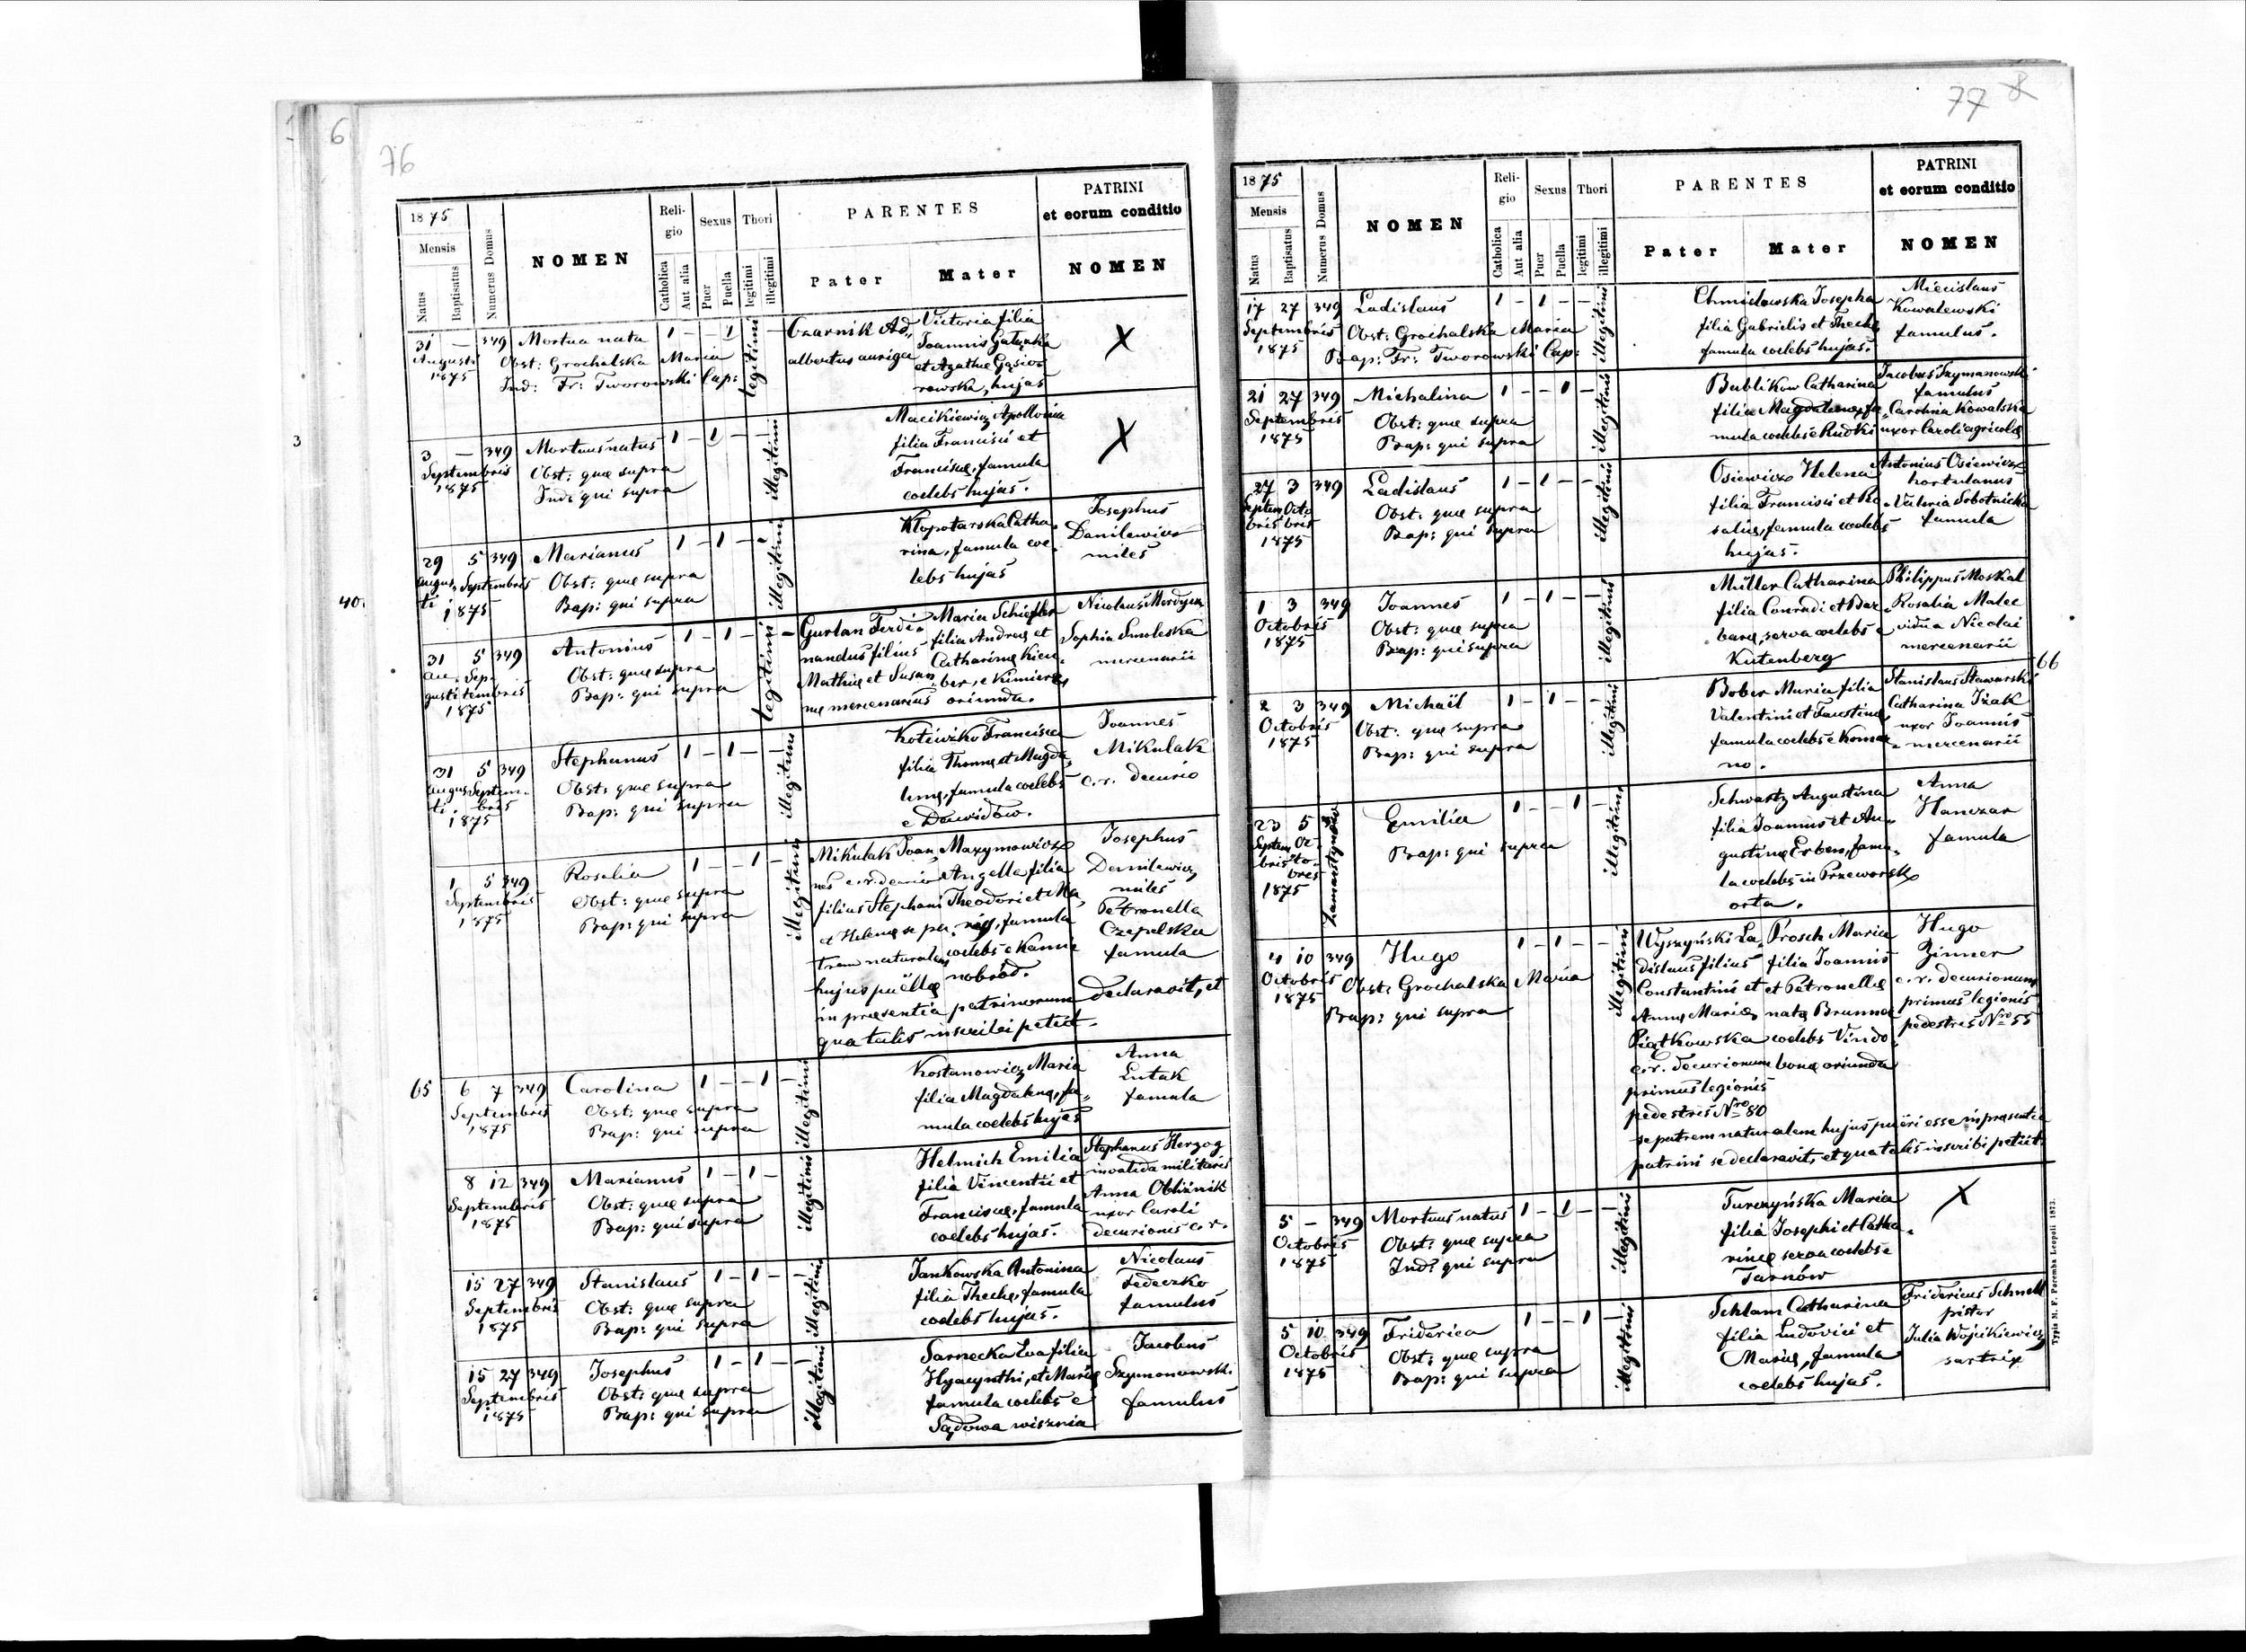 76
18 75
Mensis
Natus
Baptisatus
Numerus Domus
NOMEN
Reli-
gio
Catholica
Aut alia
Sexus
Puer
Puella
Thori
legitimi
illegitimi
PARENTES
Pater
Mater
PATRINI
et eorum conditio
NOMEN
31 — 349 Mortua nata 1 – – 1 legitimi –
Augusti
1875
Obst: Grochalska Maria
Ind: Fr: Tworowski Cap:
Czarnik Ad„
albertus auriga
Victoria filia
Joannis
et Agathae Gąsio„
rowska, hujas
X
3
3 — 349 Mortuus natus 1 – 1 – – illegitimi
Septembris
1875
Obst: quae supra
Ind: qui supra
Macikiewicz Apollonia
filia Francisci et
Franciscae, famula
coelebs hujas.
X
29 5 349 Marianus 1 – 1 – – illegitimi
Augus„ Septembris
ti
1875
Obst: quae supra
Bap: qui supra
Kłopotarska Catha„
rina, famula coe„
lebs hujas
Josephus
Danilewicz
miles
40.
31 5 349 Antonius 1 – 1 – legitimi –
Au„ Sep„
gusti tembris
1875
Obst: quae supra
Bap: qui supra
Gurlan Ferdi„
nandus filius
Mathiae et Susan„
nae mercenarius
Maria Schiefler
filia Andreae et
Catharinae Kien„
ber, e
oriunda.
Nicolaus
Sophia
mercenarii
31 5 349 Stephanus 1 – 1 – – illegitimi
Augus„ Septem„
ti bris
1875
Obst: quae supra
Bap: qui supra
Francisca
filia Thomae et Magda„
lenae, famula coelebs
e Dawidow.
Joannes
Mikulak
c.r. decurio
1 5 349 Rosalia 1 – – 1 – illegitimi
Septembris
1875
Obst: quae supra
Bap: qui supra
Mikulak Joan„
nes c.r. decurio
filius Stephani
et Helenae se pa„
trem naturalem
hujus puëllae
Maxymowicz
Angella filia
Theodori et Ma„
riae, famula
coelebs e Kamie
nobród.
in praesentia patrinorum declaravit, et
qua talis inscribi petiit.
Josephus
Danilewicz
miles
Petronella
Czepelska
famula
65
6 7 349 Carolina 1 – – 1 – illegitimi
Septembris
1875
Obst: quae supra
Bap: qui supra
Kostanowicz Maria
filia Magdalenae, fa„
mula coelebs hujas
Anna
Lutak
famula
8 12 349 Marianus 1 – 1 – illegitimi
Septembris
1875
Obst: quae supra
Bap: qui supra
Helmich Emilia
filia Vincentii et
Franciscae, famula
coelebs hujas.
Stephanus Herzog
invalida militaris
Anna Obliźnik
uxor Caroli
decurionis c.r.
15 27 349 Stanislaus 1 – 1 – – illegitimi
Septembris
1875
Obst: quae supra
Bap: qui supra
Jankowska Antonina
filia Theclae, famula
coelebs hujas.
Nicolaus
Fedeczko
famulus
15 27 349 Josephus 1 – 1 – – illegitimi
Septembris
1875
Obst: quae supra
Bap: qui supra
Sarnecka Eva filia
Hyacynthi, et Mariae
famula coelebs e
Sądowa wisznia
Jacobus
Szymonowski
famulus
77
18 75
Mensis
Natus
Baptisatus
Numerus Domus
NOMEN
Reli-
gio
Catholica
Aut alia
Sexus
Puer
Puella
Thori
legitimi
illegitimi
PARENTES
Pater
Mater
PATRINI
et eorum conditio
NOMEN
17 27 349 Ladislaus 1 – 1 – – illegitimi
Septembris
1875
Obst: Grochalska Maria
Bap: Fr: Tworowski Cap:
Chmielowska Josepha
filia Gabrielis et Theclae
famula coelebs hujas.
Miecislaus
Kowalewski
famulus.
21 27 349 Michalina 1 – – 1 – illegitimi
Septembris
1875
Obst: quae supra
Bap: qui supra
Bublikow Catharina
filia Magdalenae, fa„
mula coelebs e Rudki
Jacobus Szymanowski
famulus
Carolina Kowalska
uxor Caroli agricolae
27 3 349 Ladislaus 1 – 1 – – illegitimi
Septem Octo
bris bris
1875
Obst: quae supra
Bap: qui supra
Osiewicz Helena
filia Francisci et Ro„
saliae, famula coelebs
hujas.
Antonius Osiewicz
hortulanus
Valeria Sobotnicka
famula
1 3 349 Joannes 1 – 1 – – illegitimi
Octobris
1875
Obst: quae supra
Bap: qui supra
Müller Catharina
filia Conradi et Bar„
barae, serva coelebs e
Kutenberg
Philippus Moskal
Rosalia Malec
vidua Nicolai
mercenarii
66
2 3 349 Michaël 1 – 1 – – illegitimi
Octobris
1875
Obst: quae supra
Bap: qui supra
Bober Maria filia
Valentini et Faustinae
famula coelebs e Komar„
no.
Stanislaus Stawarski
Catharina Izak
uxor Joannis
mercenarii
23 5 Zamarstynow Emilia 1 – – 1 – illegitimi
Septem Oc„
bris to„
bris
1875
Bap: qui supra
Schwartz Augustina
filia Joannis et Au„
gustinae Erben, famu„
la coelebs in Przeworsk
orta.
Anna
Hanczar
famula
4 10 349 Hugo 1 – 1 – – illegitimi
Octobris
1875
Obst: Grochalska Maria
Bap: qui supra
Wyszyński La„
dislaus filius
Constantini et
Annae Mariae
Piątkowska
c.r. decurionum
primus legionis
pedestris Nro 80
Prosch Maria
filia Joannis
et Petronellae
natae Brunner
coelebs Vindo„
bona oriunda
se patrem naturalem hujus puëri esse in praesentia
patrini se declaravit, et qua talis inscribi petiit.
Hugo
Zinner
c.r. decurionum
primus legionis
pedestris Nro 55
5 – 349 Mortuus natus 1 – 1 – – illegitimi
Octobris
1875
Obst: quae supra
Ind: qui supra
Turczyńska Maria
filia Josephi et Catha„
rinae serva coelebs e
Tarnów
X
5 10 349 Friderica 1 – – 1 – illegitimi
Octobris
1875
Obst: quae supra
Bap: qui supra
Schlam Catharina
filia Ludovici et
Mariae, famula
coelebs hujas.
Fridericus Schnell
pistor
Julia Wojcikiewicz
sartrix
Typis M. F. Poremba Leopoli 1873.